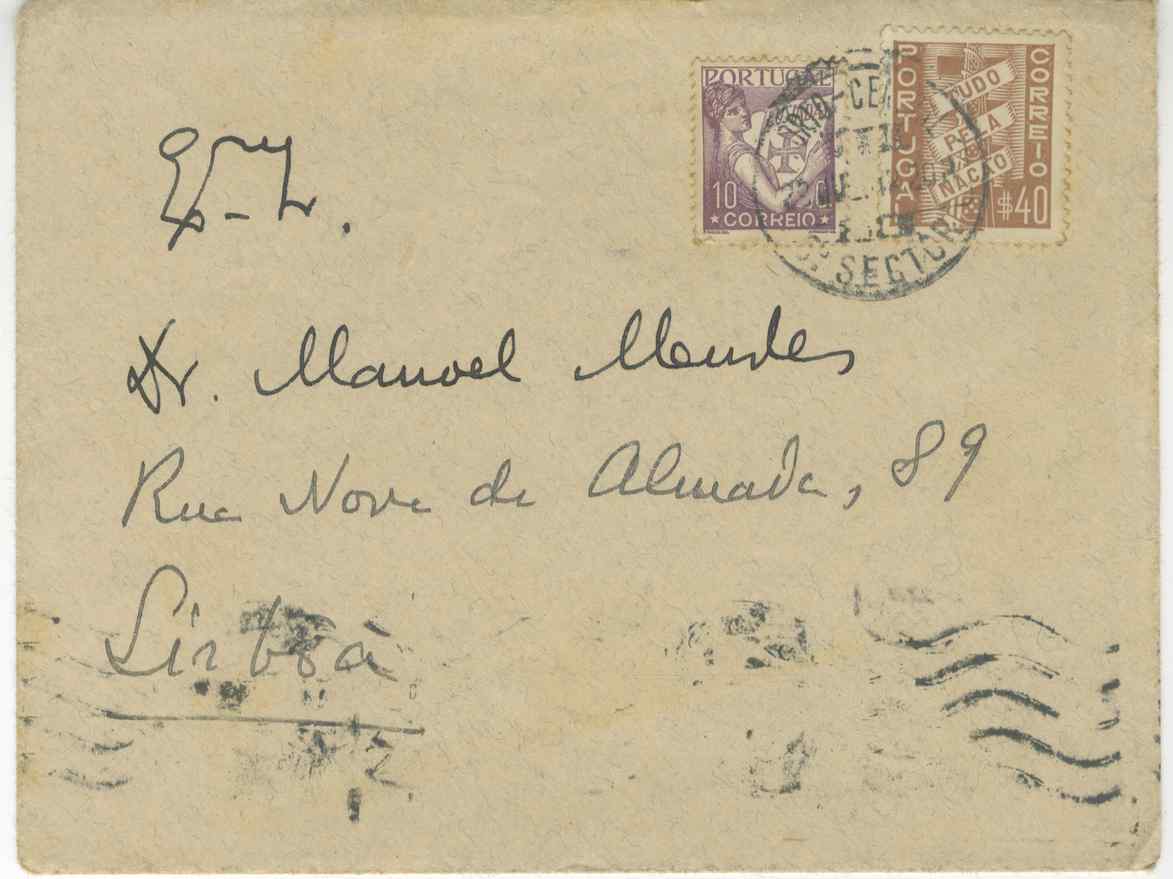 PORTUGAL
10 C.
★ CORREIO ★
PORTUGAL
CORREIO
TUDO
PELA
NAÇÃO
$40
SECTOR
Exmo.
Dr. Manoel Mendes
Rua Nova do Almada, 89
Lisboa